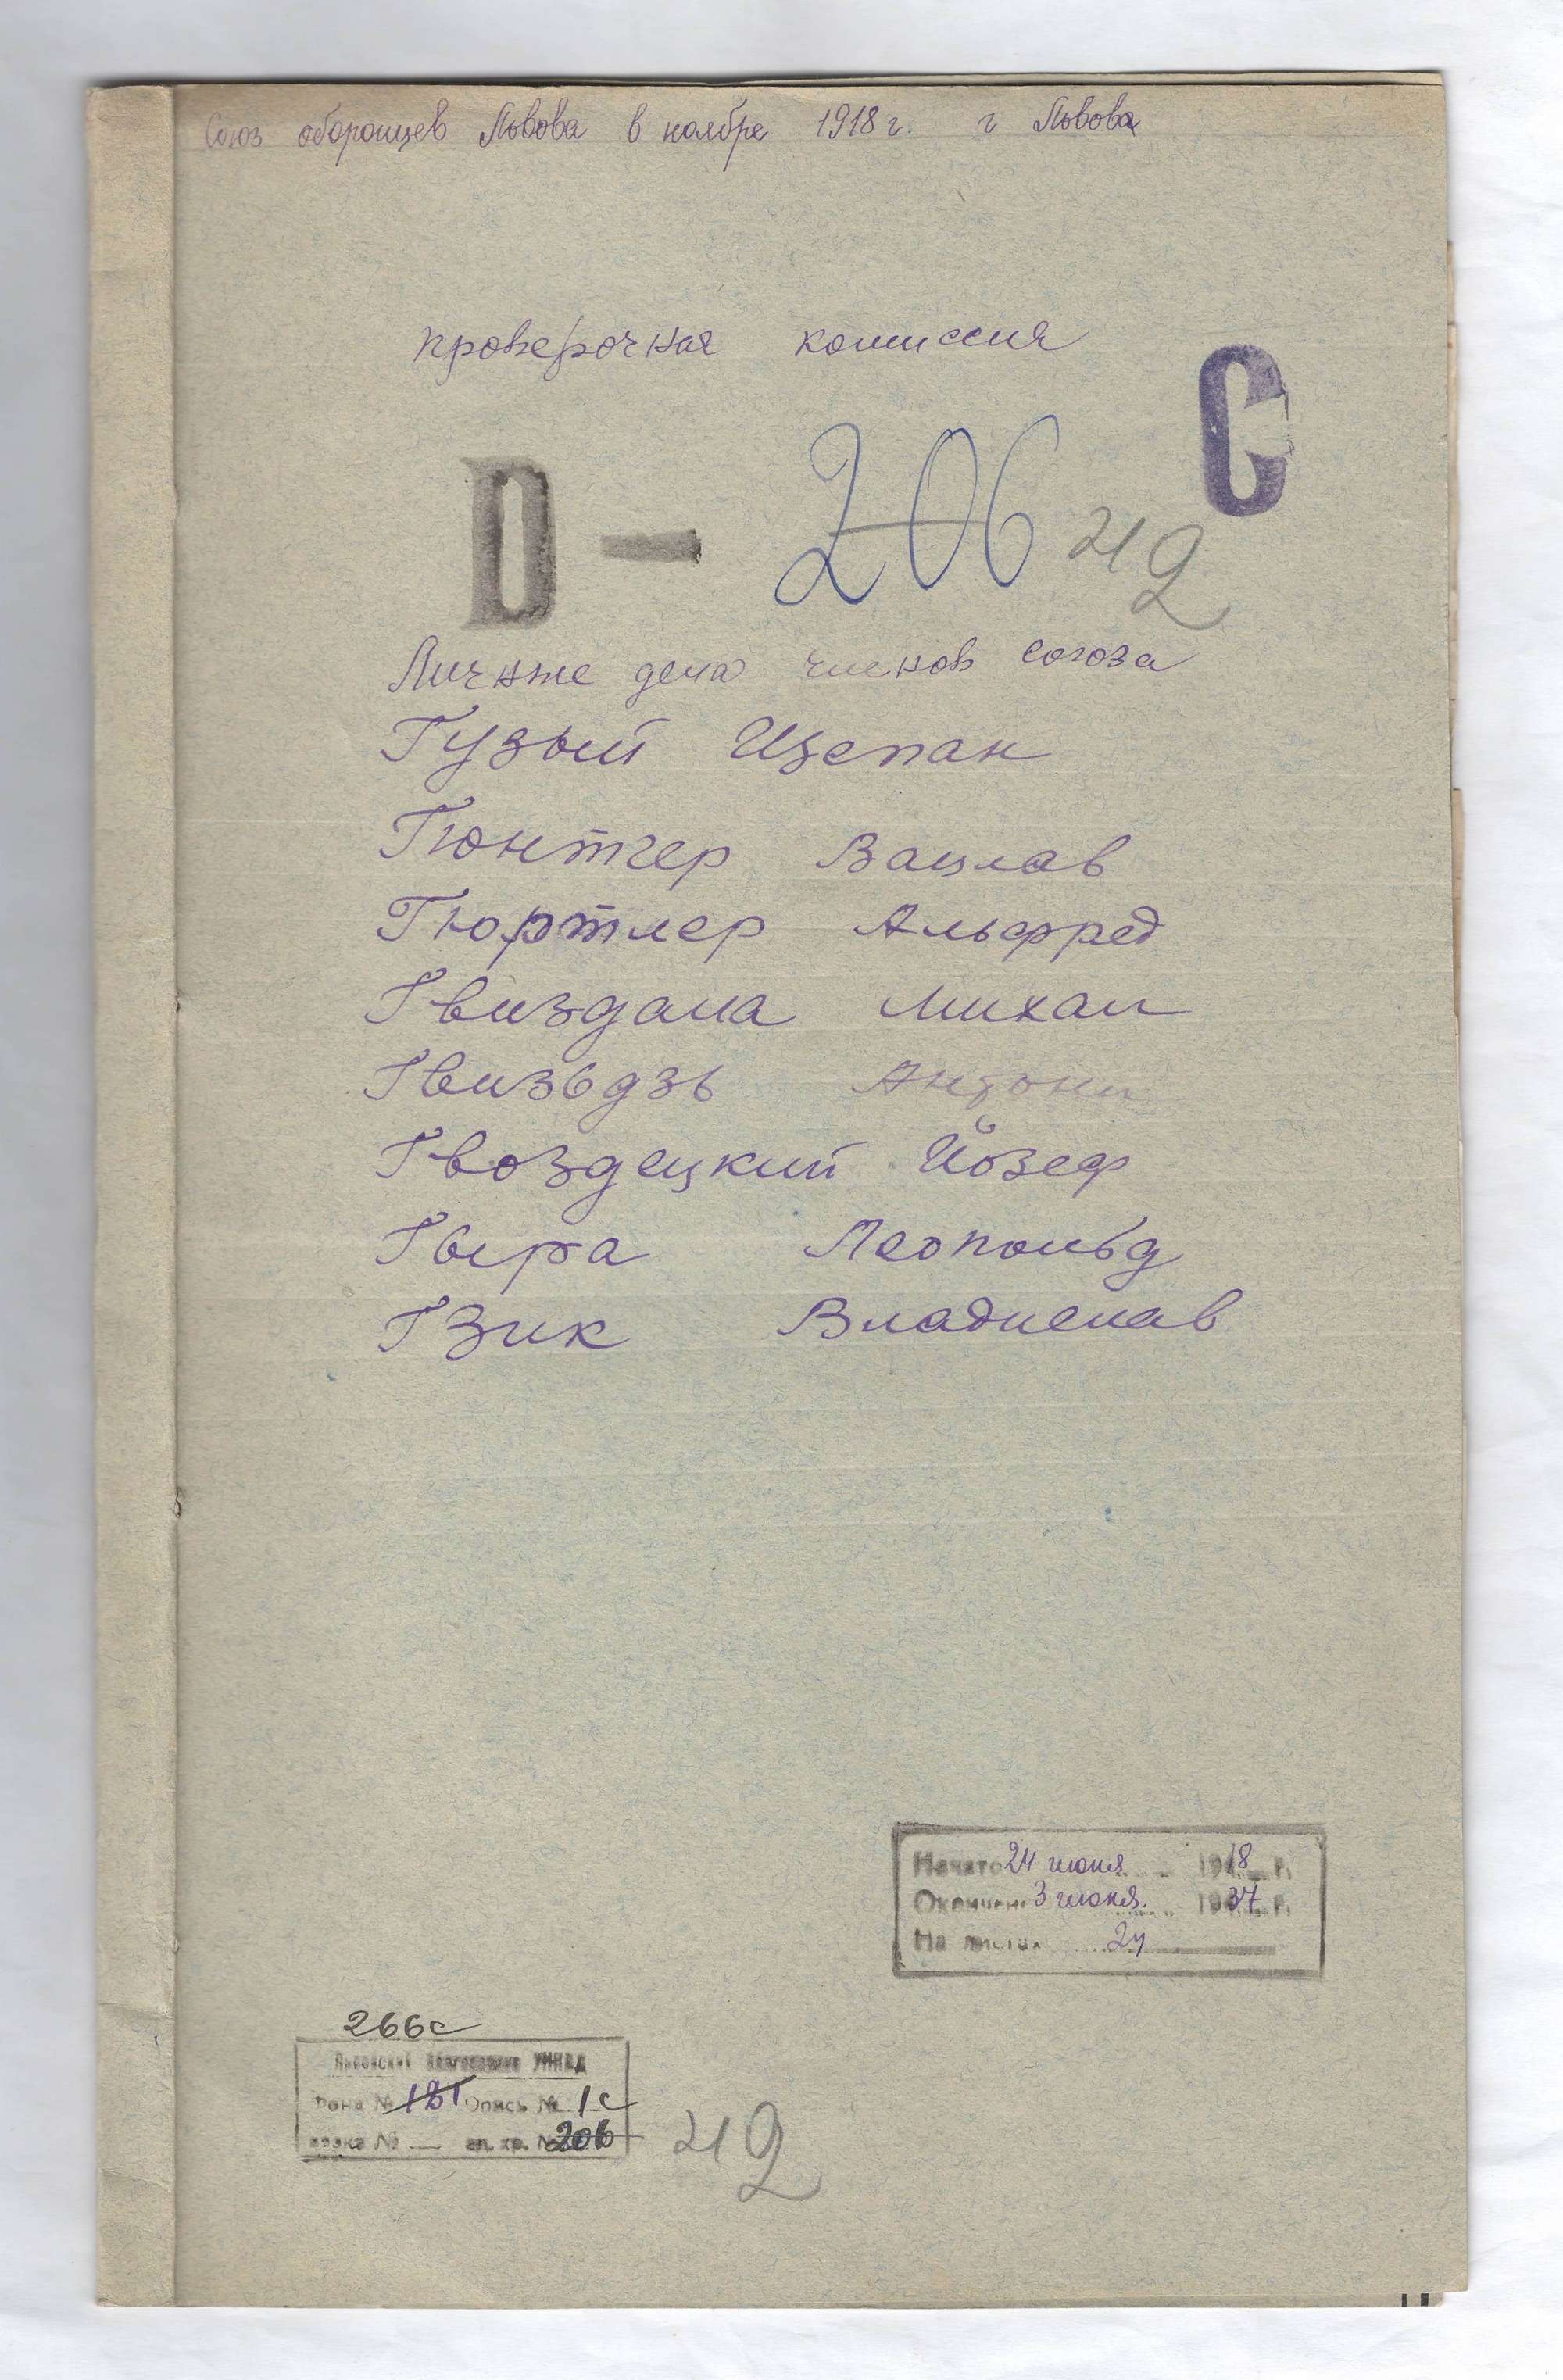 Союз оборонцев Львова в ноябре 1918 г. г Львова
проверочная комиссия
С
D — 206 42
Личные дела членов союза
Гузый Щепан
Гюнтгер Вацлав
Гюртлер Альфред
Гвиздала Михал
Гвизьдзь Антони
Гвоздецкий Йозеф
Гыра Леопольд
Гзик Владислав
Начато 24 июня 1918 г.
Окончено 3 июня 1937 г.
На листах 24
266с
Львовский УНКВД
Фонд № 181 Опись № 1с
вязка № — ед. хр. № 206
42